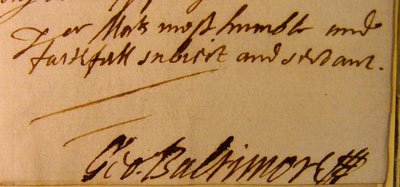 Yor Mats most humble and
faithfull subiect and servant.
Geo. Baltimore